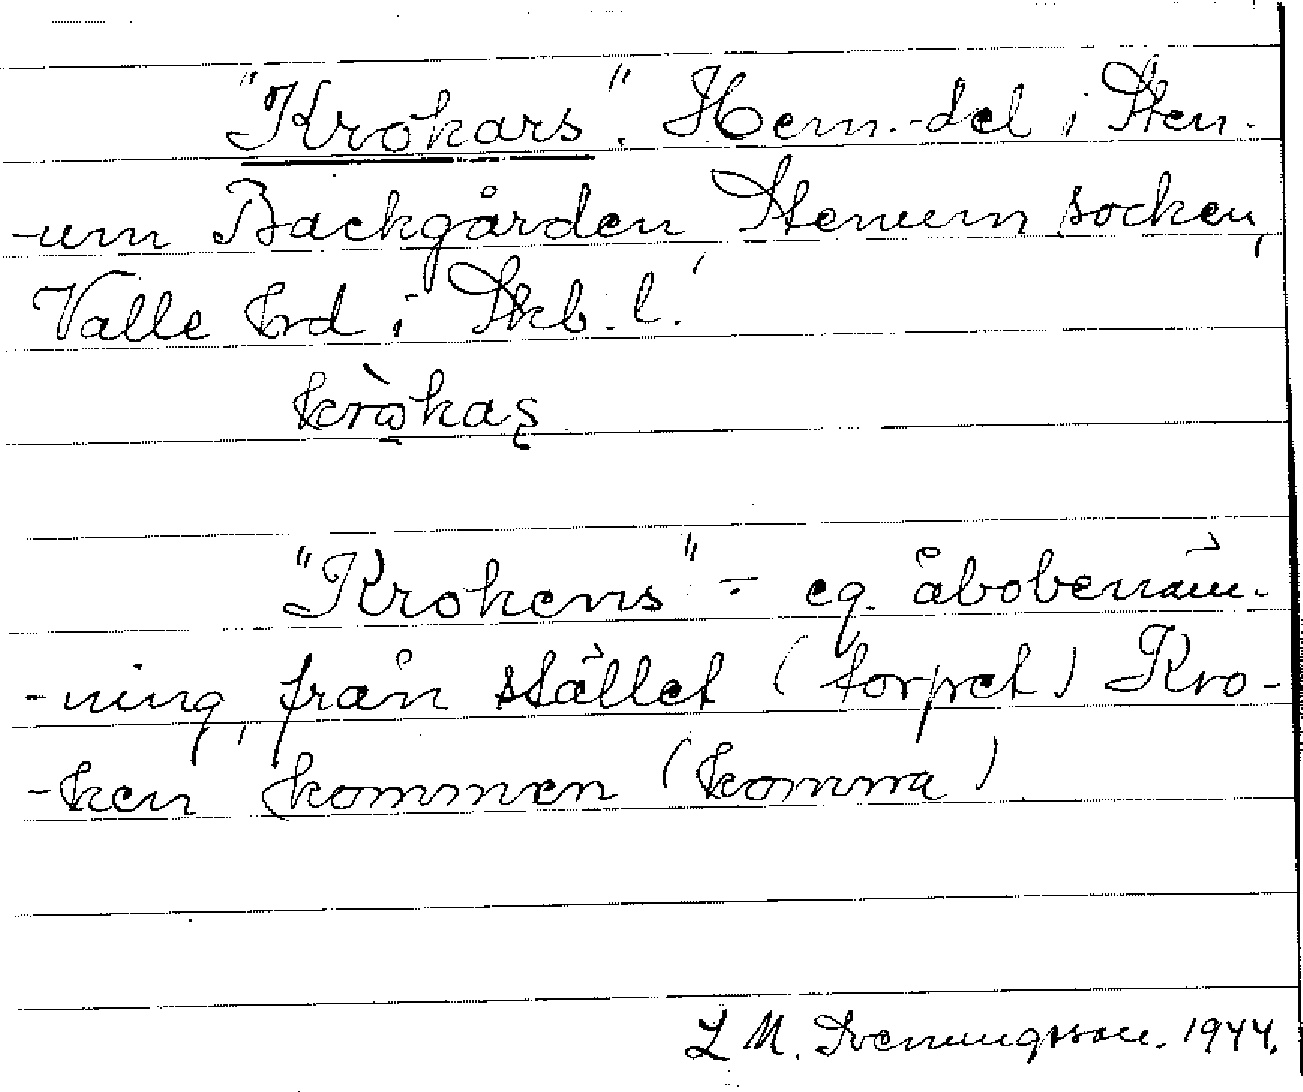 "Krokars". Hem.-del i Sten-
-um Backgården, Stenum socken,
Valle hrd i Skb. l.
kròkaş
"Krokens" - eg. åbobenäm-
-ning, från stället (torpet) Kro-
-ken kommen (komma)
L M. Svenungsson. 1944.